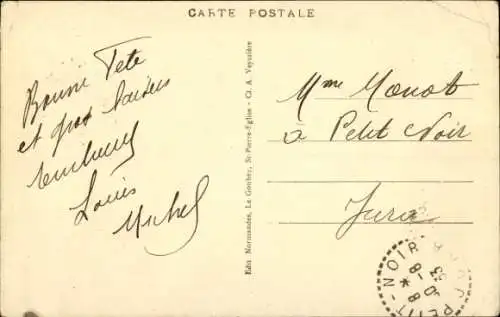 CARTE POSTALE
Bonne Fete
et gros baisers
Louis
Michel
Edit Normandes, Le Goubey, St-Pierre-Eglise - Cl. A. Veyssière
Mme Monot
à Petit Noir
Jura
PETIT-NOIR